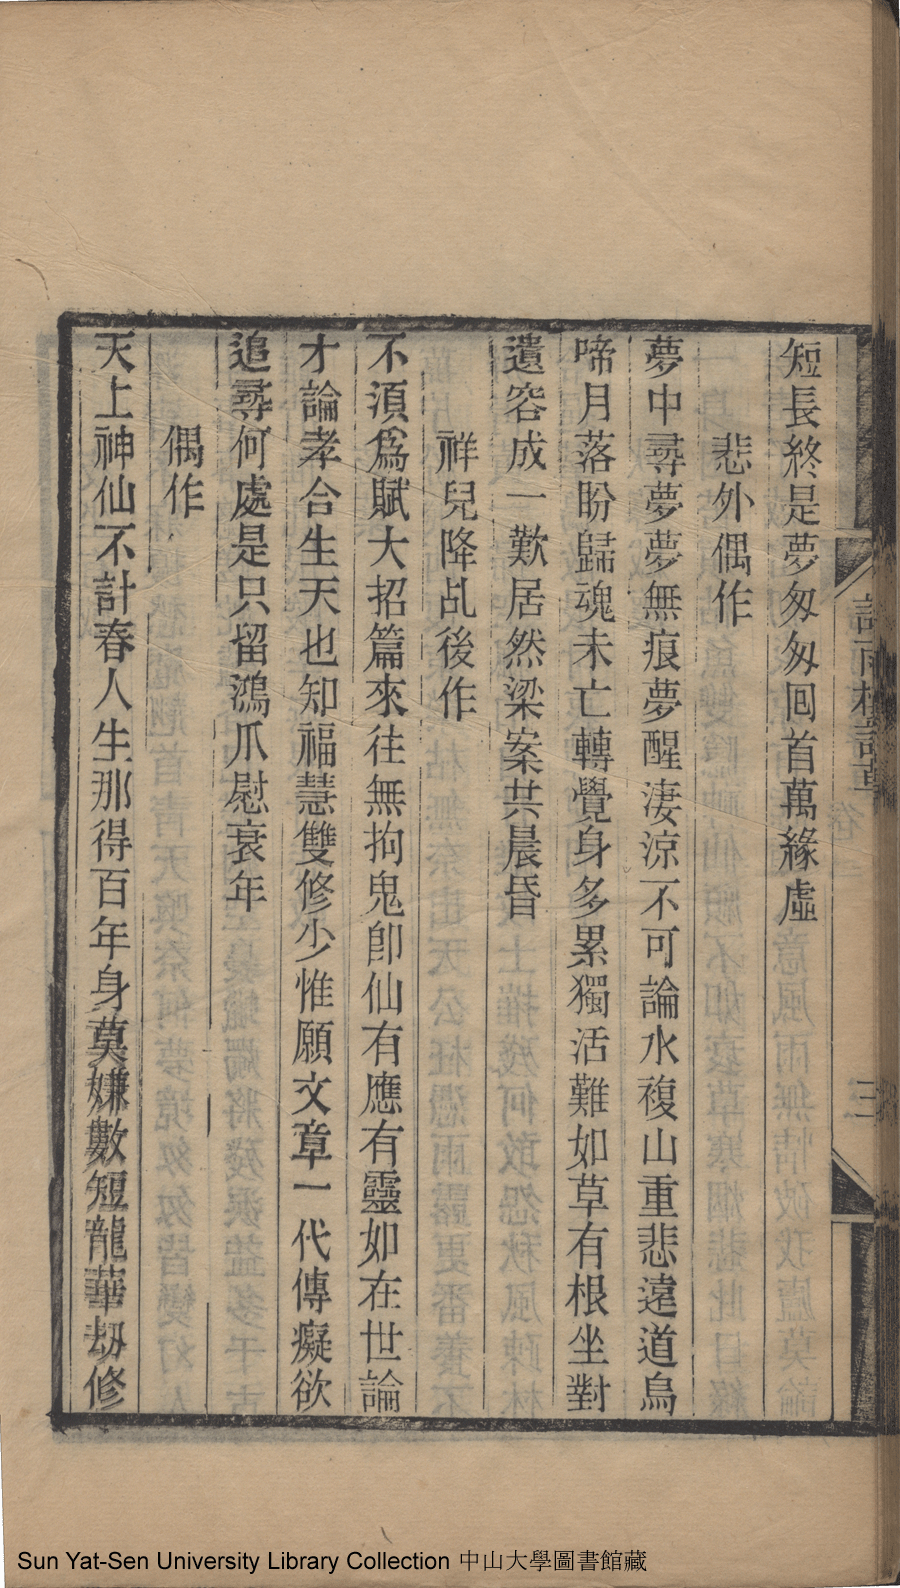 短長終是夢匆匆囘首萬緣虛
悲外偶作
夢中尋夢夢無痕夢醒淒涼不可論水複山重悲遠道鳥
啼月落盼歸魂未亡轉覺身多累獨活難如草有根坐對
遺容成一歎居然梁案共晨昏
祥兒降乩後作
不須爲賦大招篇來往無拘鬼卽仙有應有靈如在世論
才論孝合生天也知福慧雙修少惟願文章一代傳癡欲
追尋何處是只留鴻爪慰衰年
偶作
天上神仙不計春人生那得百年身莫嫌數短龍華劫修
三
Sun Yat-Sen University Library Collection 中山大學圖書館藏